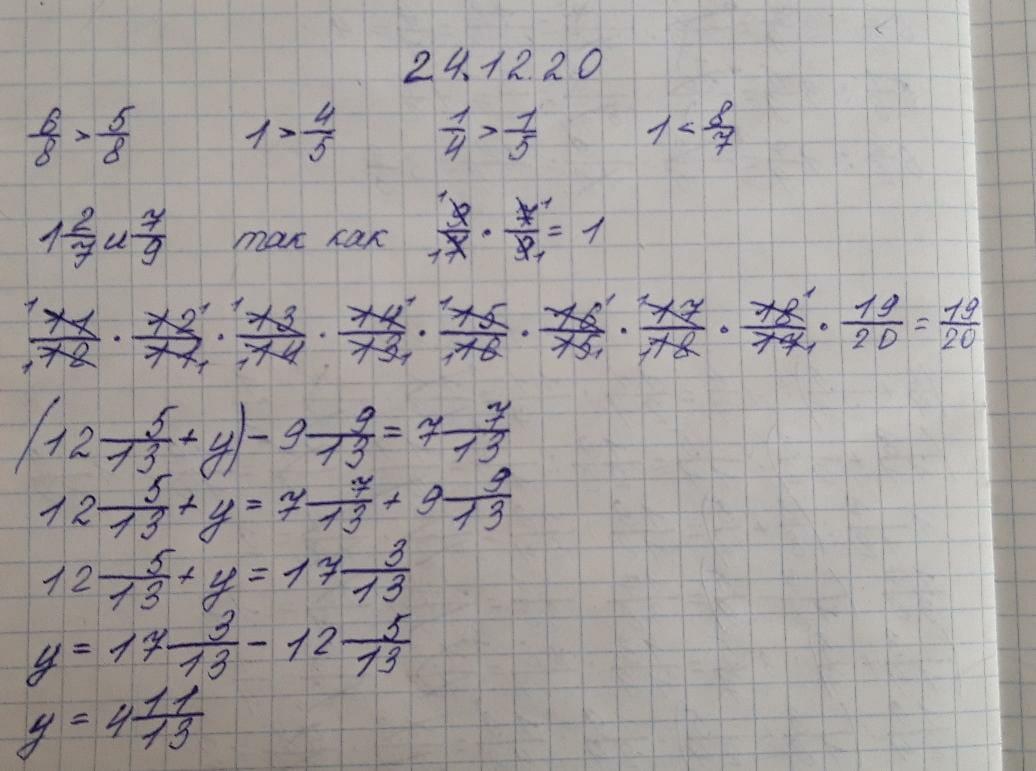 24.12.20
6/8 > 5/8 1 > 4/5 1/4 > 1/5 1 < 8/7
1 2/7 и 7/9 так как 9/7 · 7/9 = 1
11/12 · 12/11 · 13/14 · 14/13 · 15/16 · 16/15 · 17/18 · 18/17 · 19/20 = 19/20
(12 5/13 + y) - 9 9/13 = 7 7/13
12 5/13 + y = 7 7/13 + 9 9/13
12 5/13 + y = 17 3/13
y = 17 3/13 - 12 5/13
y = 4 11/13